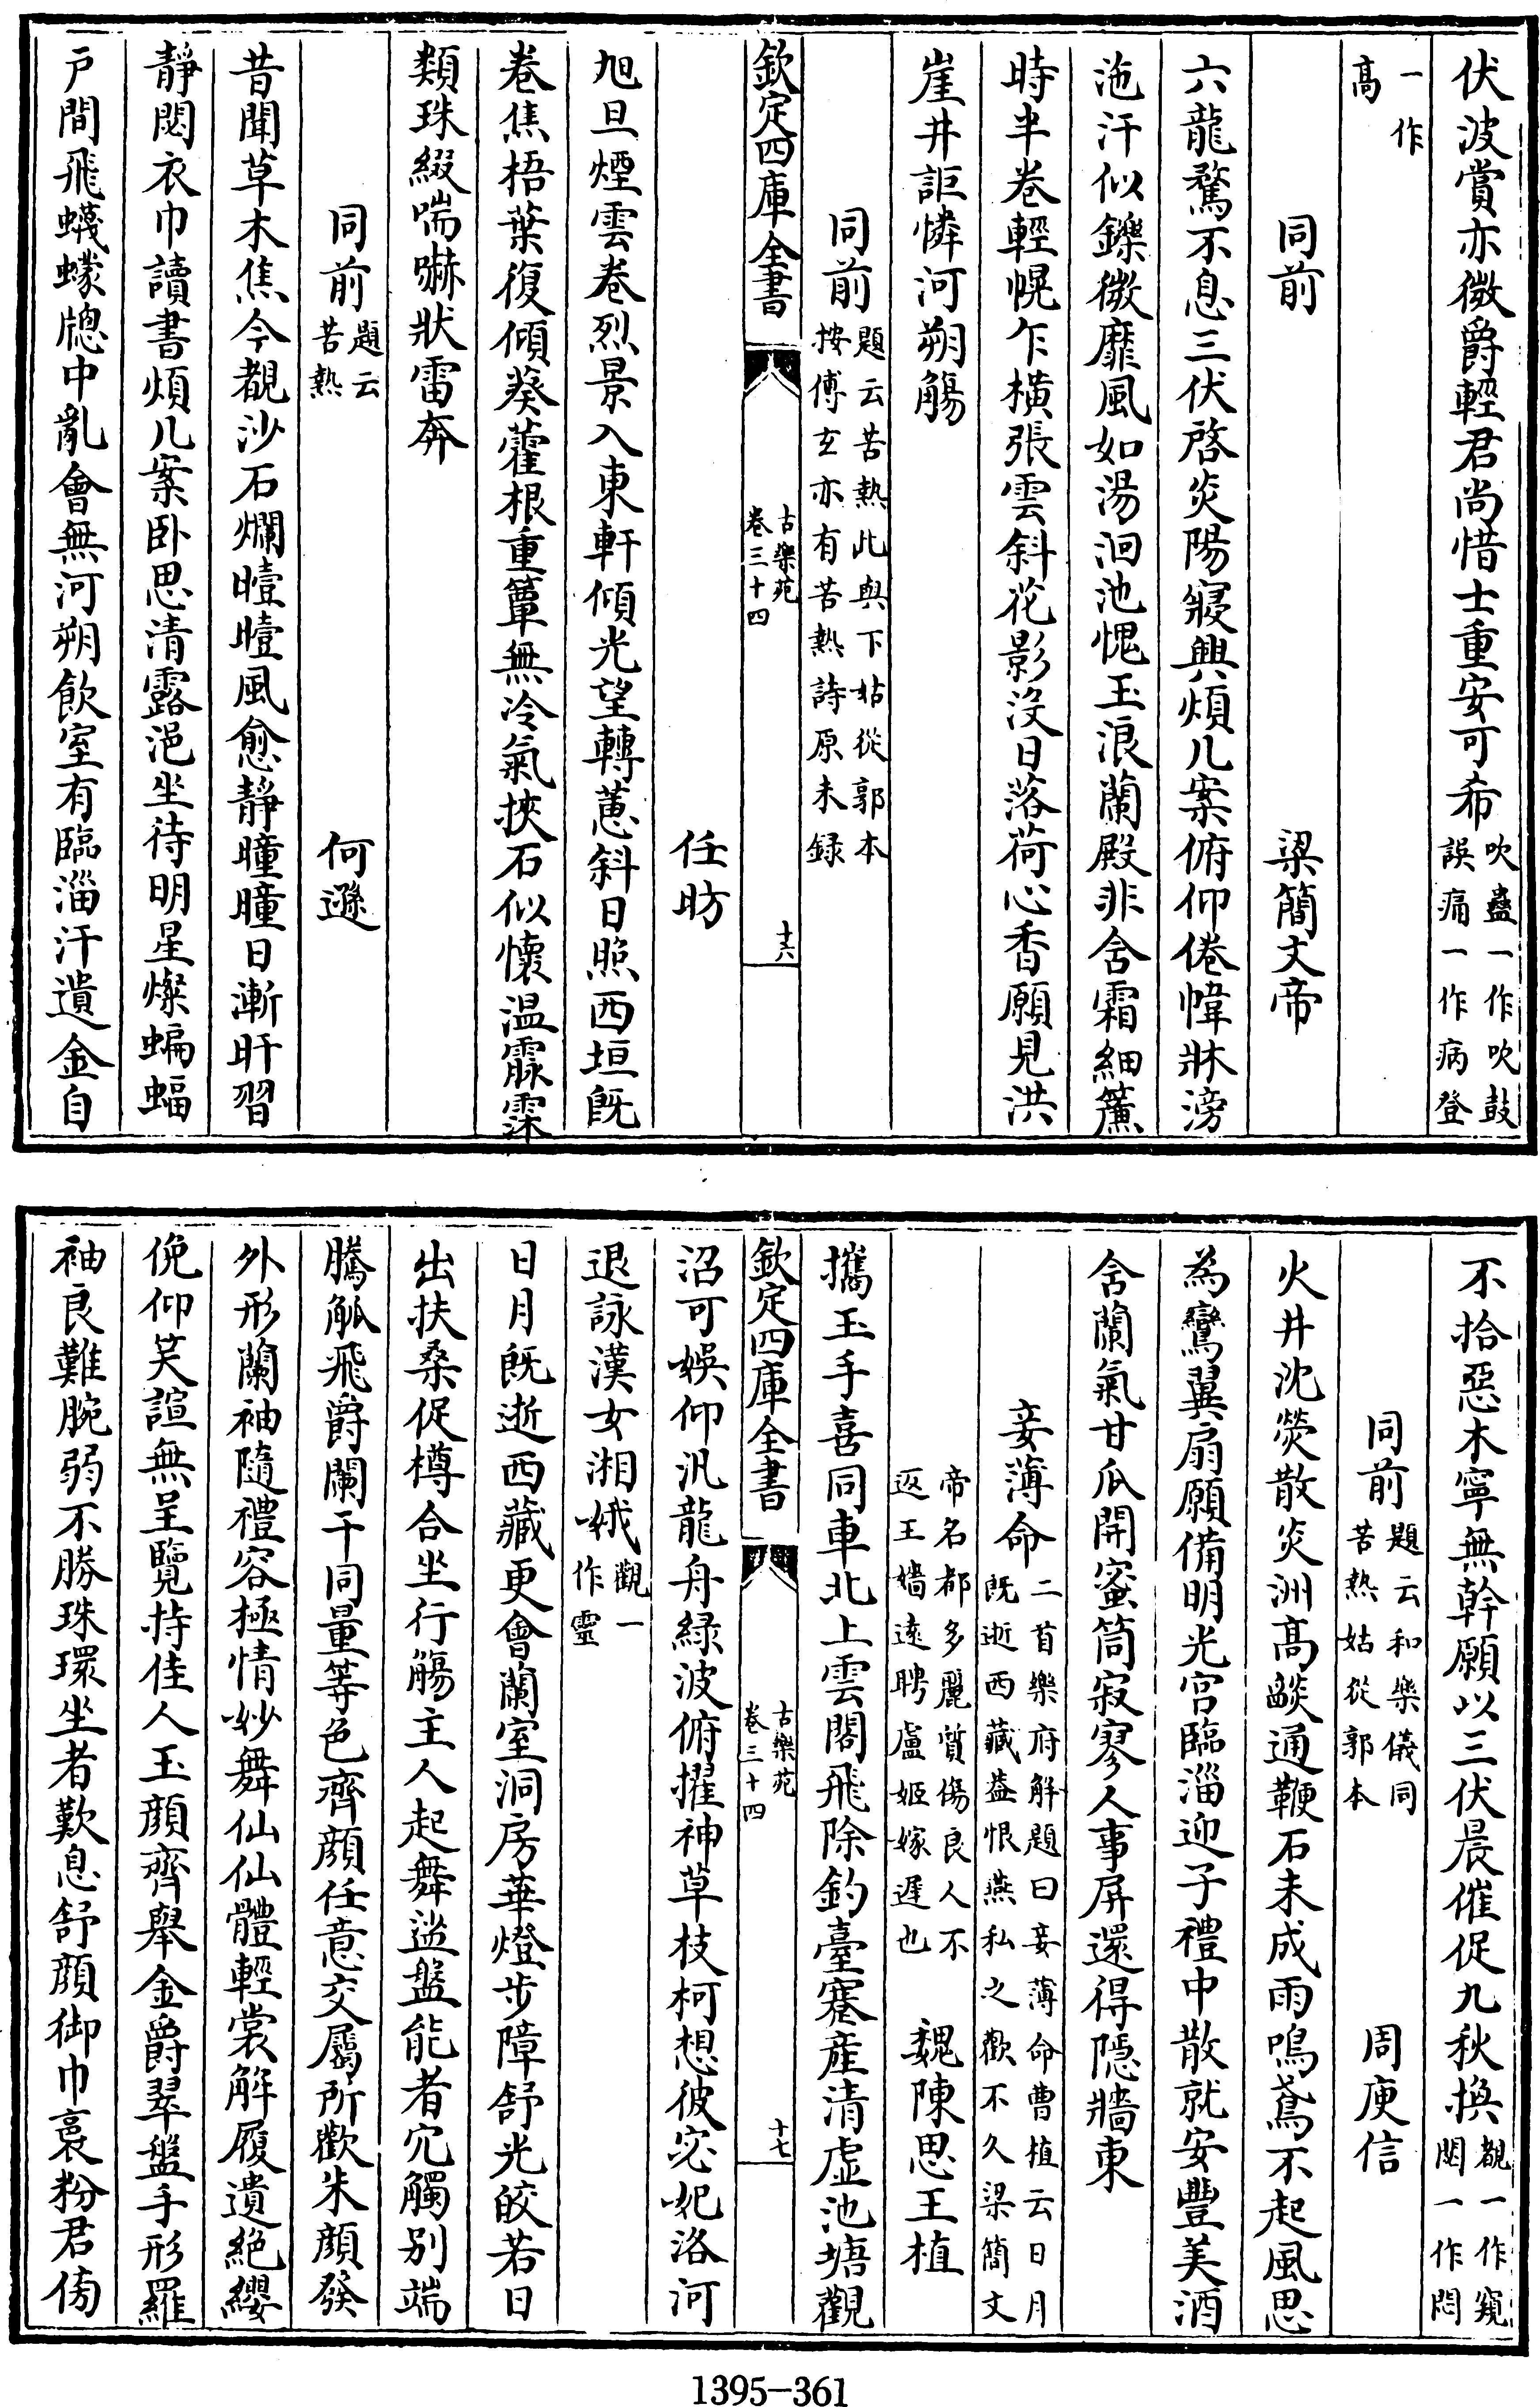 伏波賞亦微爵輕君尚惜士重安可希吹蠱一作吹鼓誤痛一作病登
一作高
同前　梁簡文帝
六龍騖不息三伏啓炎陽寢興煩几案俯仰倦幃牀滂
沲汗似鑠微靡風如湯洄池愧玉浪蘭殿非含霜細簾
時半卷輕幌乍橫張雲斜花影沒日落荷心香願見洪
崖井詎憐河朔觴
同前題云苦熱此與下姑從郭本按傅玄亦有苦熱詩原未録
欽定四庫全書　古樂苑卷三十四　十六
任昉
旭旦煙雲卷烈景入東軒傾光望轉蕙斜日照西垣既
卷焦梧葉復傾葵藿根重簟無冷氣挾石似懷温霢霂
類珠綴喘嚇狀雷奔
同前題云苦熱　何遜
昔聞草木焦今覩沙石爛曀曀風愈靜曈曈日漸旰習
靜閟衣巾讀書煩几案卧思清露浥坐待明星燦蝙蝠
户間飛蠛蠓牕中亂會無河朔飲室有臨淄汗遺金自
不拾惡木寧無幹願以三伏晨催促九秋換覩一作窺閟一作悶
同前題云和樂儀同苦熱姑從郭本　周庾信
火井沈熒散炎洲高燄通鞭石未成雨鳴鳶不起風思
為鸞翼扇願備明光宫臨淄迎子禮中散就安豐美酒
含蘭氣甘瓜開蜜筒寂寥人事屏還得隱牆東
妾薄命二首樂府解題曰妾薄命曹植云日月既逝西藏葢恨燕私之歡不久梁簡文
帝名都多麗質傷良人不返王嬙遠聘盧姬嫁遲也　魏陳思王植
攜玉手喜同車北上雲閣飛除釣臺蹇産清虚池塘觀
欽定四庫全書　古樂苑卷三十四　十七
沼可娛仰汎龍舟緑波俯擢神草枝柯想彼宓妃洛河
退詠漢女湘娥觀一作靈
日月既逝西藏更會蘭室洞房華燈步障舒光皎若日
出扶桑促樽合坐行觴主人起舞盤盤能者穴觸别端
騰觚飛爵闌干同量等色齊顔任意交屬所歡朱顔發
外形蘭袖隨禮容極情妙舞仙仙體輕裳解履遺絶纓
俛仰笑諠無呈覽持佳人玉顔齊舉金爵翠盤手形羅
袖良難腕弱不勝珠環坐者歎息舒顔御巾裛粉君傍
1395-361